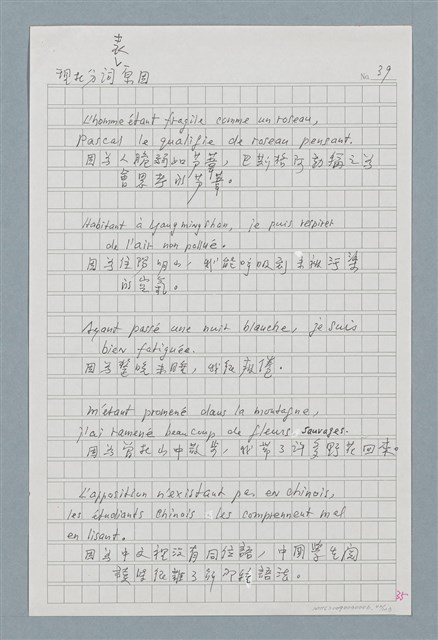 表
現在分詞 原因
No. 39
L'homme étant fragile comme un roseau,
Pascal le qualifie de roseau pensant.
因為人脆弱如芦葦，巴斯格阿勒稱之為
會思考的芦葦。
Habitant à Yangmingshan, je puis respirer
de l'air non pollué.
因為住陽明山，我能呼吸到未被污染
的空氣。
Ayant passé une nuit blanche, je suis
bien fatiguée.
因為整晚未睡，我很疲倦。
M'étant promené dans la montagne,
j'ai ramené beaucoup de fleurs sauvages.
因為曾在山中散步，我帶了許多野花回來。
L'apposition n'existant pas en chinois,
les étudiants chinois les comprennent mal
en lisant.
因為中文裡沒有同位語，中國學生閱
讀時很難了解這語法。
35